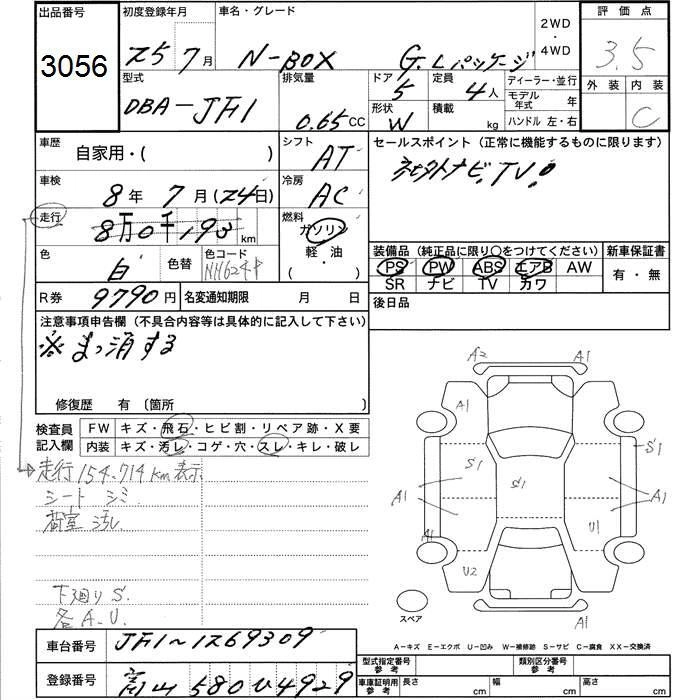 出品番号
3056
初度登録年月
25 7月
車名・グレード
N-BOX G.Lパッケージ
2WD
・
4WD
評価点
3.5
外装 内装
C
型式
DBA-JF1
排気量
0.65 CC
ドア
5
定員
4人
形状
W
積載
kg
ディーラー・並行
モデル年式 年
ハンドル 左・右
車歴
自家用・( )
シフト
AT
セールスポイント (正常に機能するものに限ります)
社外ナビ.TV.
車検
8年7月(24日)
冷房
AC
走行
8万0千193km
燃料
ガソリン
軽・油
( ・ )
色
白
色替
色コード
NH624P
装備品 (純正品に限り○をつけてください)
新車保証書
PS PW ABS エアB AW
有・無
SR ナビ TV カワ
R券 9790円
名変通知期限 月 日
後日品
注意事項申告欄 (不具合内容等は具体的に記入して下さい)
※まっ消する
修復歴 有 (箇所 )
検査員記入欄
FW キズ・飛石・ヒビ割・リペア跡・X要
内装 キズ・汚レ・コゲ・穴・スレ・キレ・破レ
走行154.714km表示
シート シミ
荷室 汚レ
下廻りS.
各A.U.
A2 A1
A1
S1 S1 S'1
A1 A1
A1 U1
U2
A1
スペア
A-キズ E-エクボ U-凹み W-補修跡 S-サビ C-腐食 XX-交換済
車台番号
JF1~1269309
登録番号
富山 580 U 4929
型式指定番号 参考
類別区分番号 参考
車庫証明用 参考
長さ cm 幅 cm 高さ cm